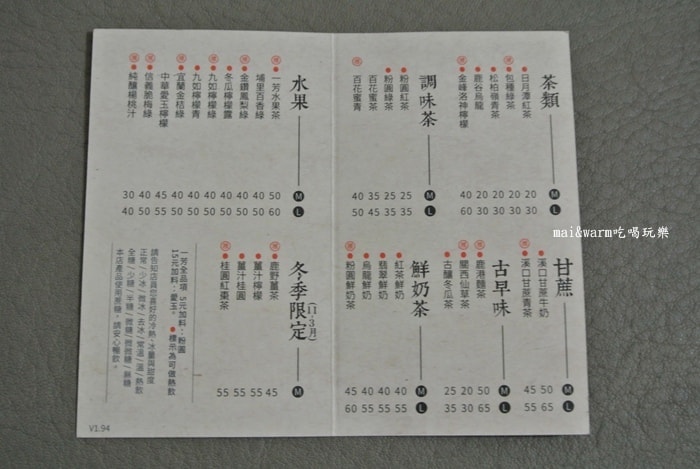 茶類 M L
日月潭紅茶 20 30
包種綠茶 20 30
松柏嶺青茶 20 30
鹿谷烏龍 20 30
金峰洛神檸檬 40 60
調味茶 M L
粉圓紅茶 25 35
粉圓綠茶 25 35
百花蜜茶 35 45
百花蜜青 40 50
水果 M L
一芳水果茶 50 60
埔里百香綠 40 50
金鑽鳳梨綠 40 50
冬瓜檸檬露 40 50
九如檸檬綠 40 50
九如檸檬青 40 50
宜蘭金桔綠 40 50
中華愛玉檸檬 45 55
信義脆梅綠 40 50
純釀楊桃汁 30 40
甘蔗 M L
溪口甘蔗牛奶 50 65
溪口甘蔗青茶 45 55
古早味 M L
鹿港麵茶 50 65
關西仙草茶 20 30
古釀冬瓜茶 25 35
鮮奶茶 M L
紅茶鮮奶 40 55
翡翠鮮奶 40 55
烏龍鮮奶 40 55
粉圓鮮奶茶 45 60
冬季限定 (11-3月) M
鹿野薑茶 45
薑汁檸檬 55
薑汁桂圓 55
桂圓紅棗茶 55
一芳全品項 5元加料：粉圓
15元加料：愛玉。 標示為可做熱飲
請告知店員您喜好的冷熱、冰量與甜度
正常/少冰/微冰/去冰/常溫/溫/熱飲
全糖/少糖/半糖/微糖/微微糖/無糖
本店產品使用蔗糖，請安心暢飲。
V1.94
mai&warm吃喝玩樂